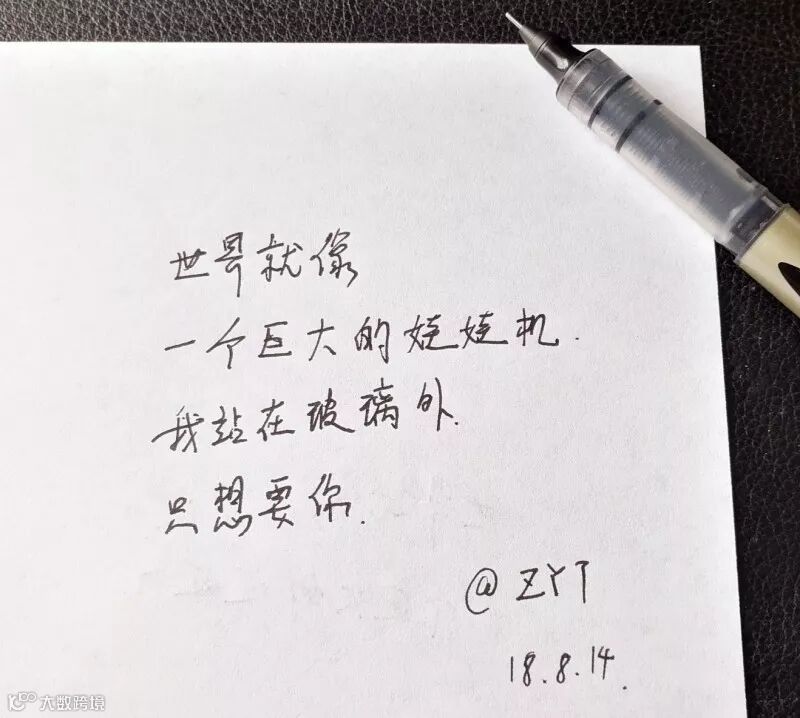 世界就像
一个巨大的娃娃机.
我站在玻璃外.
只想要你.
@ZYT
18.8.14.
大数跨境